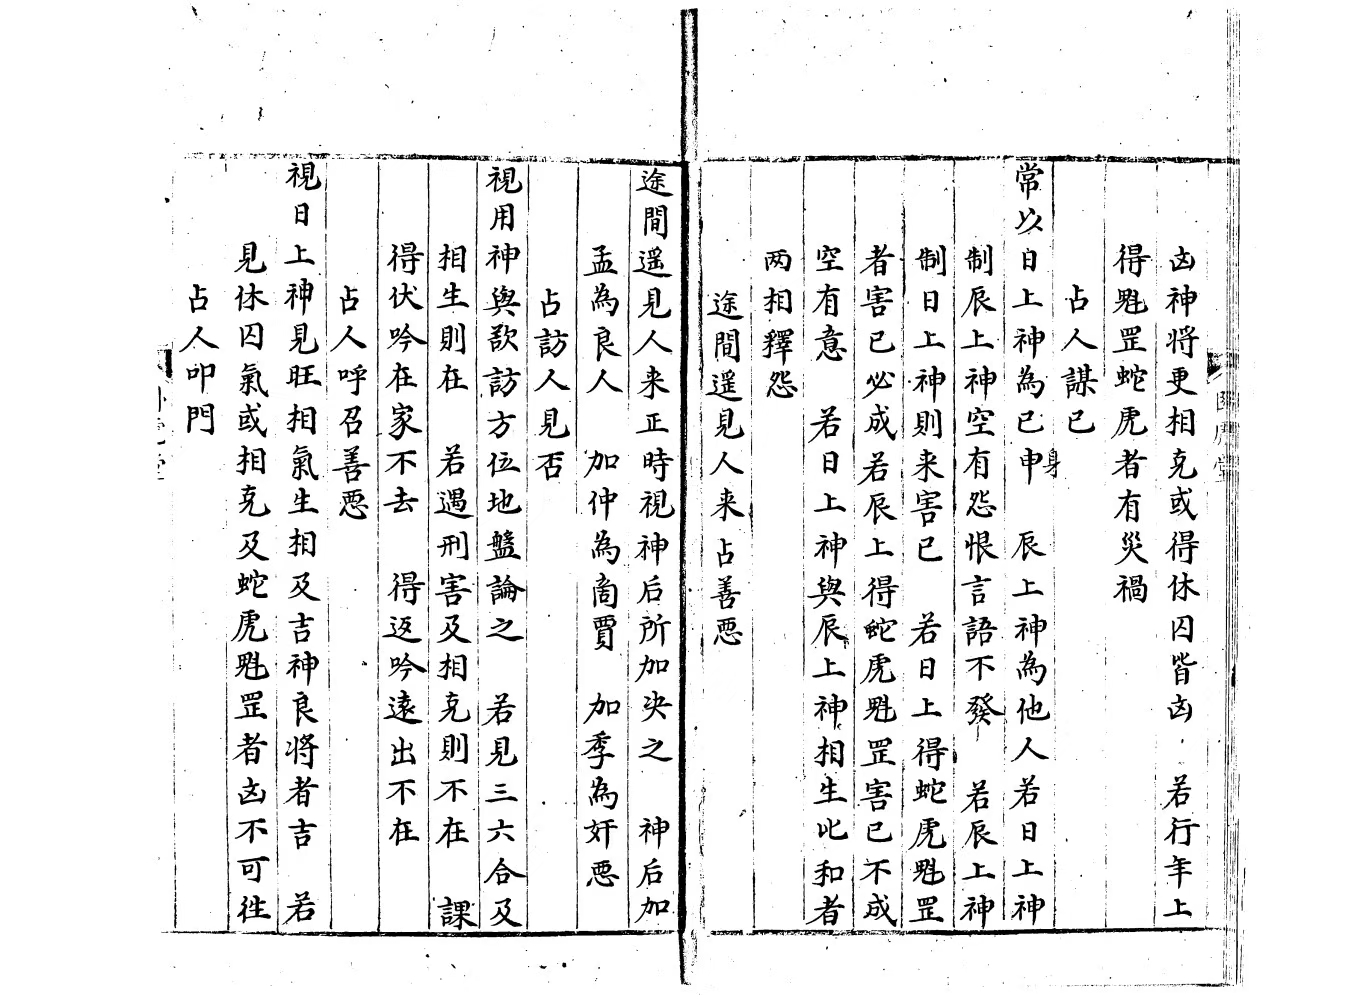 凶神将更相克或得休囚皆凶 若行年上
得魁罡蛇虎者有災禍
占人謀已
常以日上神為已身申 辰上神為他人若日上神
制辰上神空有怨恨言語不發 若辰上神
制日上神則来害已 若日上得蛇虎魁罡
者害已必成若辰上得蛇虎魁罡害已不成
空有意 若日上神與辰上神相生比和者
两相釋怨
途間遥見人来占善惡
途間遥見人来正時視神后所加决之 神后加
孟為良人 加仲為啇賈 加季為奸惡
占訪人見否
視用神與欲訪方位地盤論之 若見三六合及
相生則在 若遇刑害及相克則不在 課
得伏吟在家不去 得返吟遠出不在
占人呼召善惡
視日上神見旺相氣生相及吉神良将者吉 若
見休囚氣或相克及蛇虎魁罡者凶不可往
占人叩門